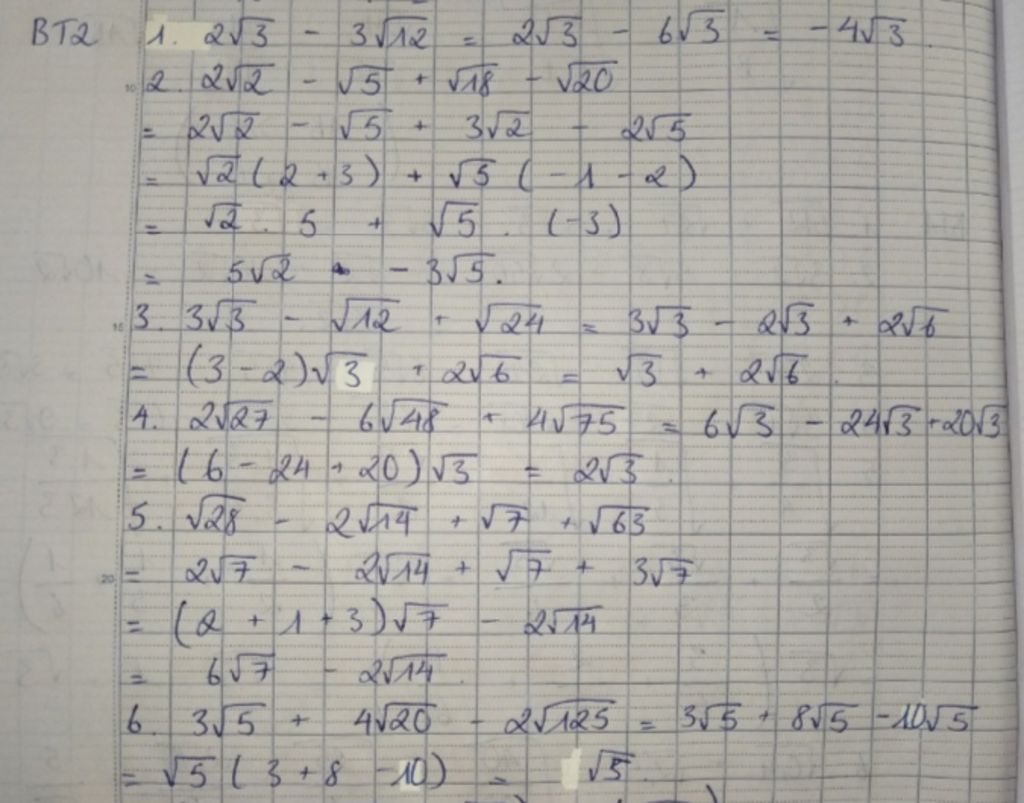 BT2 1. 2√3 - 3√12 = 2√3 - 6√3 = -4√3.
2. 2√2 - √5 + √18 - √20
= 2√2 - √5 + 3√2 - 2√5
= √2 (2 + 3) + √5 (-1 - 2)
= √2 . 5 + √5 . (-3)
= 5√2 - 3√5.
3. 3√3 - √12 + √24 = 3√3 - 2√3 + 2√6
= (3 - 2)√3 + 2√6 = √3 + 2√6.
4. 2√27 - 6√48 + 4√75 = 6√3 - 24√3 + 20√3
= (6 - 24 + 20)√3 = 2√3.
5. √28 - 2√14 + √7 + √63
= 2√7 - 2√14 + √7 + 3√7
= (2 + 1 + 3)√7 - 2√14
= 6√7 - 2√14.
6. 3√5 + 4√20 - 2√125 = 3√5 + 8√5 - 10√5
= √5 (3 + 8 - 10) = √5.